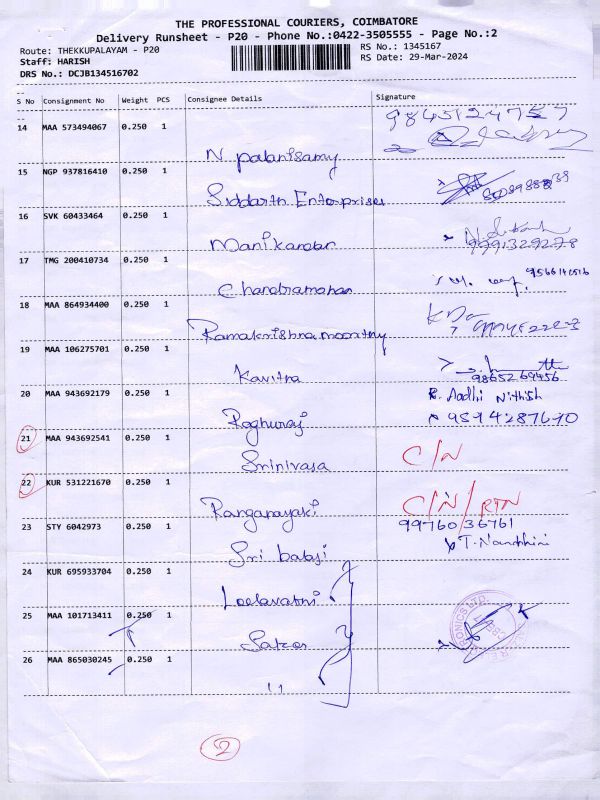 THE PROFESSIONAL COURIERS, COIMBATORE
Delivery Runsheet - P20 - Phone No.:0422-3505555 - Page No.:2
Route: THEKKUPALAYAM - P20
RS No.: 1345167
Staff: HARISH
RS Date: 29-Mar-2024
DRS No.: DCJB134516702
S No Consignment No Weight PCS Consignee Details Signature
9845124757
14 MAA 573494067 0.250 1
N. palanisamy
15 NGP 937816410 0.250 1
Siddarth Enterprises
16 SVK 60433464 0.250 1
Manikandan
17 TMG 200410734 0.250 1
9566142516
Chandramohan
18 MAA 864934400 0.250 1
Ramakrishnamoorthy
19 MAA 106275701 0.250 1
Kavitha
9865269456
20 MAA 943692179 0.250 1
R. Aadhi Nithish
Raghuraj
9594287670
21 MAA 943692541 0.250 1
Srinivasa
C/N
22 KUR 531221670 0.250 1
Ranganayaki
C/N/RTN
23 STY 6042973 0.250 1
99760 36761
T. Nandhini
Sri balaji
24 KUR 695933704 0.250 1
Leelavathi
25 MAA 101713411 0.250 1
26 MAA 865030245 0.250 1
11
2